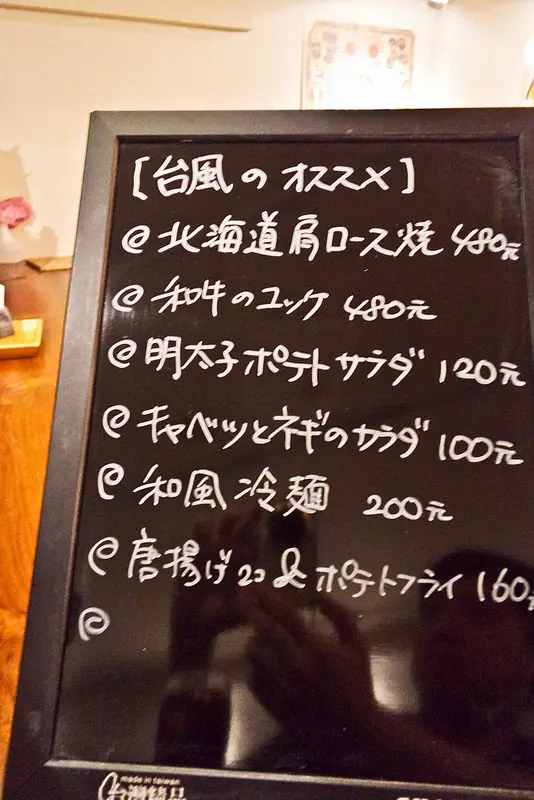 [台風のオススメ]
@北海道肩ロース焼 480元
@和牛のユッケ 480元
@明太子ポテトサラダ 120元
@キャベツとネギのサラダ 100元
@和風冷麺 200元
@唐揚げ2コ&ポテトフライ 160元
@
made in taiwan